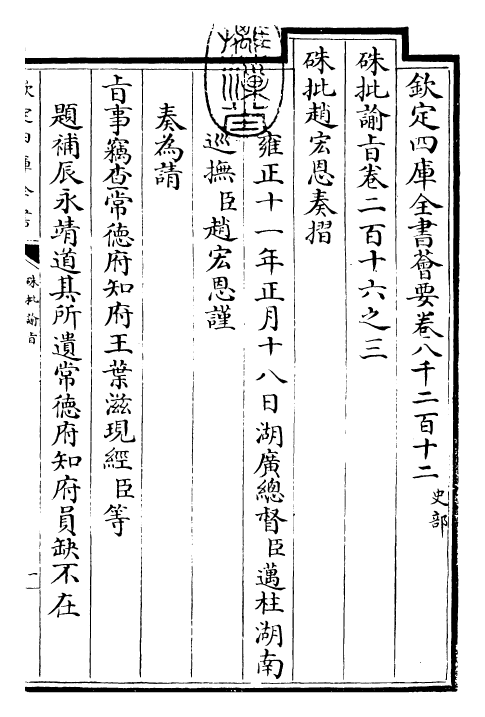 欽定四庫全書薈要卷八千二百十二史部
硃批諭旨卷二百十六之三
硃批趙宏恩奏摺
雍正十一年正月十八日湖廣總督臣邁柱湖南
巡撫臣趙宏恩謹
奏為請
旨事竊查常德府知府王葉滋現經臣等
題補辰永靖道其所遺常德府知府員缺不在
欽定四庫全書
硃批諭旨
一